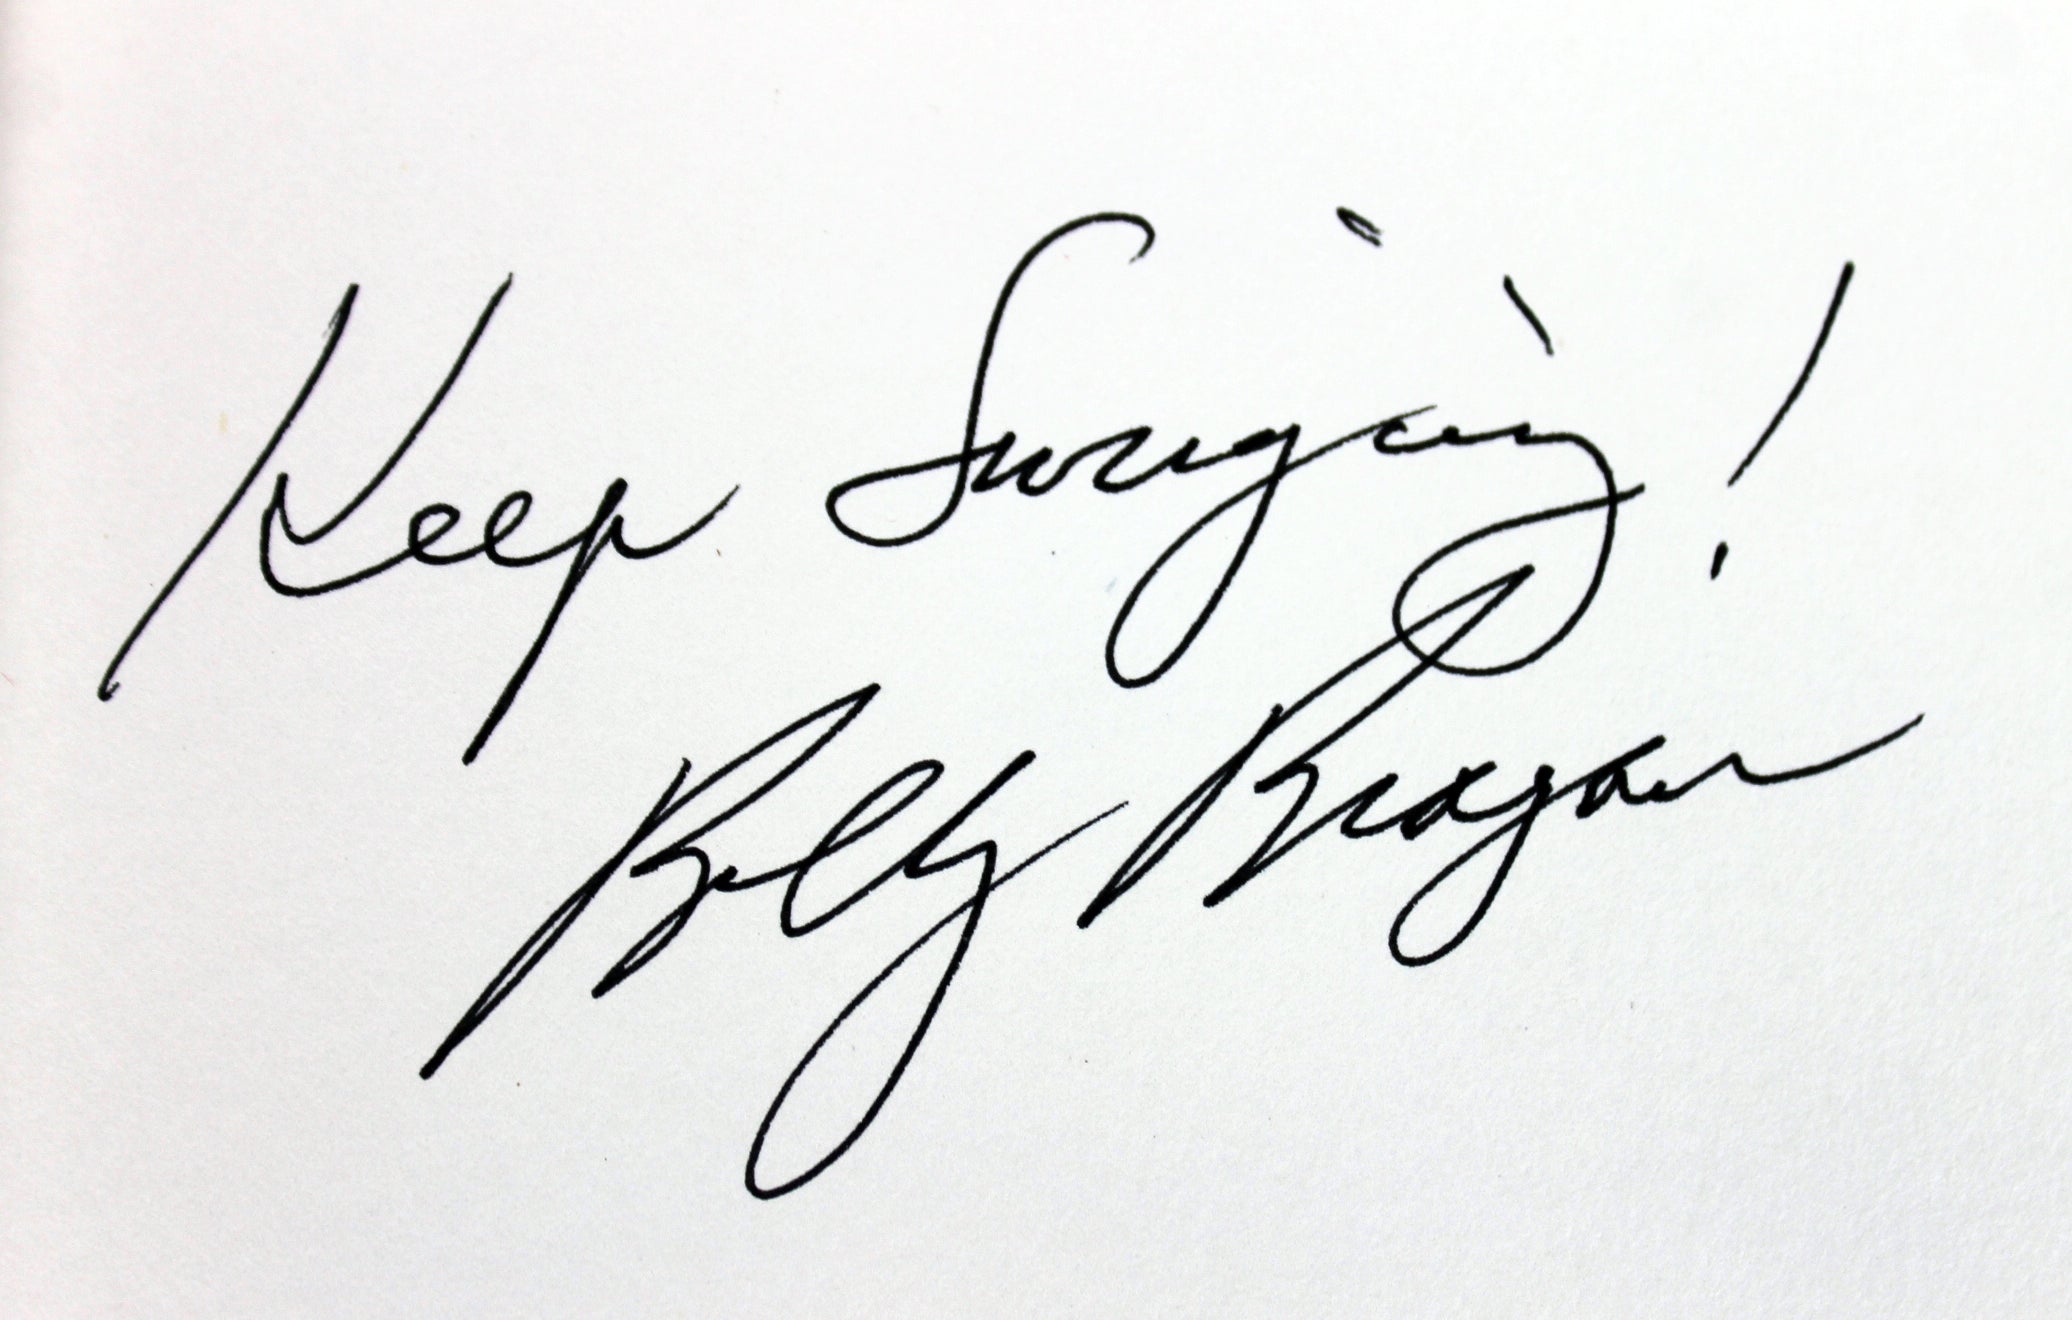 Keep Swinging!
Billy Bragan